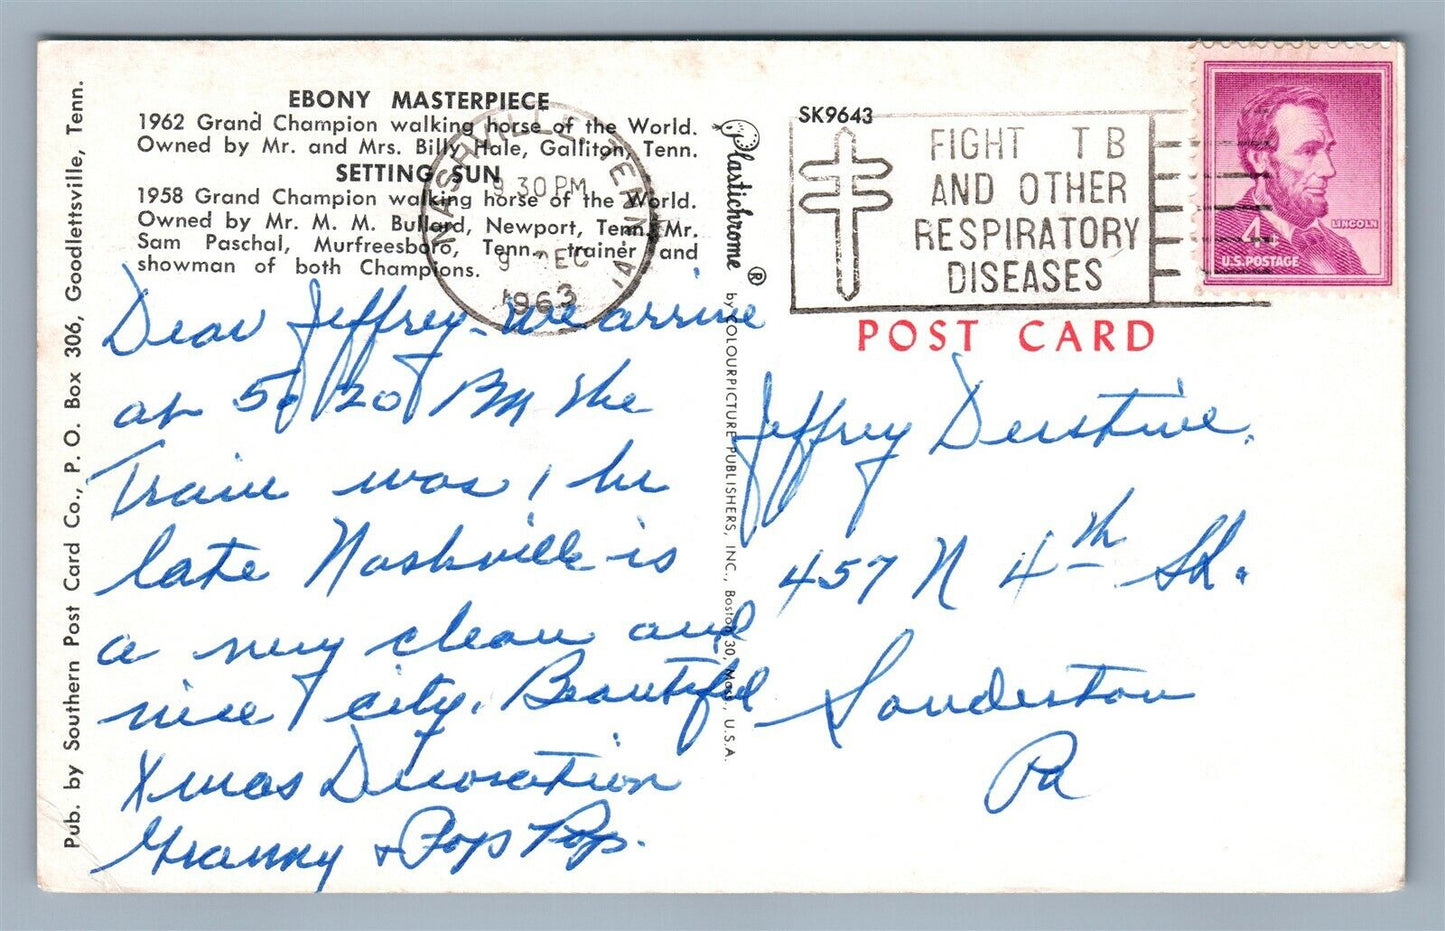 EBONY MASTERPIECE
1962 Grand Champion walking horse of the World.
Owned by Mr. and Mrs. Billy Hale, Galliton, Tenn.
SETTING SUN
1958 Grand Champion walking horse of the World.
Owned by Mr. M. M. Bullard, Newport, Tenn. Mr.
Sam Paschal, Murfreesboro, Tenn., trainer and
showman of both Champions.
Pub. by Southern Post Card Co., P. O. Box 306, Goodlettsville, Tenn.
Dear Jeffrey - We arrive
at 5:20 PM the
Train was 1 hr
late Nashville is
a very clean and
nice city. Beautiful
Xmas Decoration
Granny + Pop Pop.
Plastichrome ® by COLOURPICTURE PUBLISHERS, INC., Boston 30, Mass., U.S.A.
NASHVILLE, TENN.
9 30 PM
9 DEC
1963
SK9643
FIGHT TB
AND OTHER
RESPIRATORY
DISEASES
LINCOLN
4¢
U.S. POSTAGE
POST CARD
Jeffrey Derstine.
457 N 4th St.
Souderton
Pa